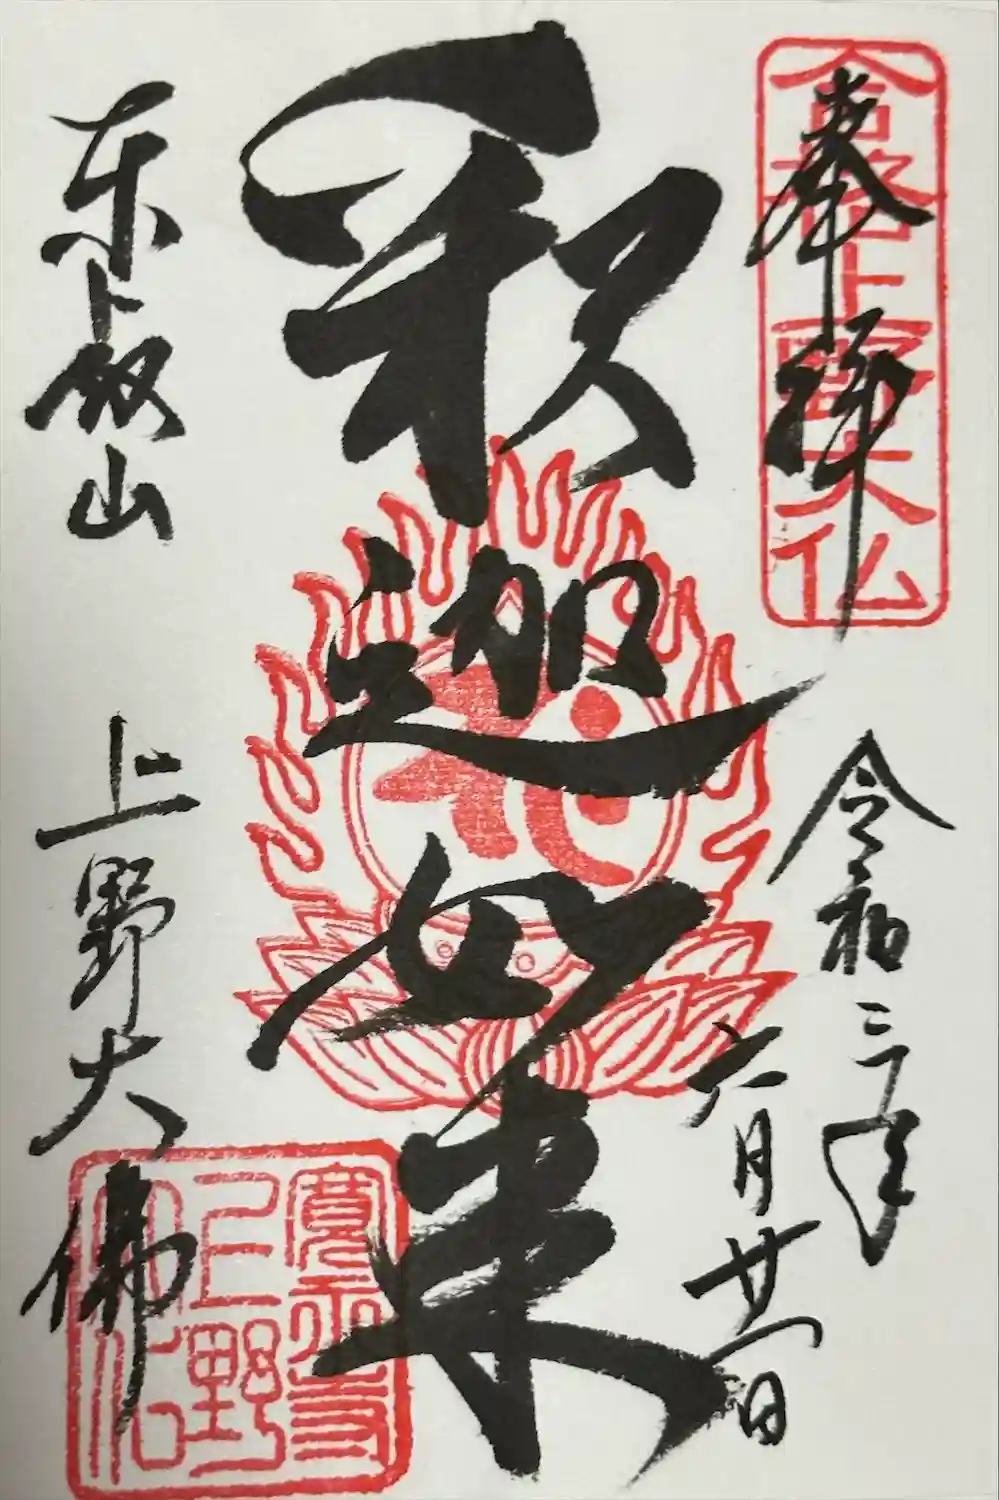 奉拝
合格上野大仏
令和三年
六月廿一日
釈迦如来
東叡山
上野大佛
寛永寺
上野
大仏